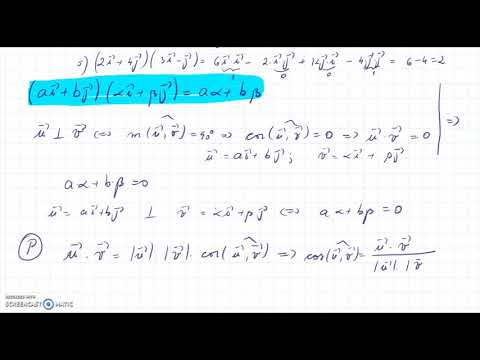 5) (2i⃗+4j⃗)(3i⃗-j⃗)= 6i⃗·i⃗ - 2·i⃗j⃗ + 12j⃗·i⃗ - 4j⃗·j⃗ = 6-4=2
1 0 0 1
(ai⃗+bj⃗)(αi⃗+βj⃗)=aα+bβ
u⃗ ⊥ v⃗ ⇔ m(u⃗,v⃗)=90° ⇒ cos(u⃗,v⃗)=0 ⇒ u⃗·v⃗=0 ⇒
u⃗=ai⃗+bj⃗; v⃗=αi⃗+βj⃗
aα+b·β=0
u⃗=ai⃗+bj⃗ ⊥ v⃗=αi⃗+βj⃗ ⇔ aα+bβ=0
P u⃗·v⃗=|u⃗|·|v⃗|·cos(u⃗,v⃗) ⇒ cos(u⃗,v⃗)= u⃗·v⃗
|u⃗|·|v⃗
RECORDED WITH
SCREENCAST MATIC